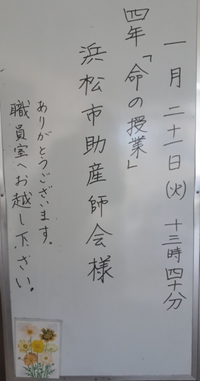 一月二十一日(火)十三時四十分
四年「命の授業」
浜松市助産師会様
ありがとうございます。
職員室へお越し下さい。